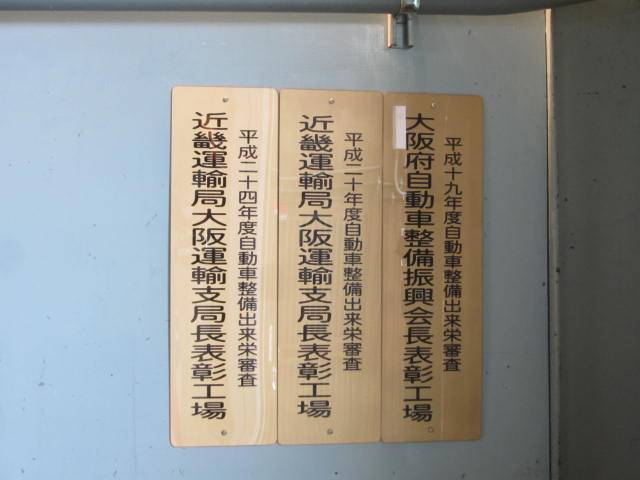 平成十九年度自動車整備出来栄審査
大阪府自動車整備振興会長表彰工場
平成二十年度自動車整備出来栄審査
近畿運輸局大阪運輸支局長表彰工場
平成二十四年度自動車整備出来栄審査
近畿運輸局大阪運輸支局長表彰工場